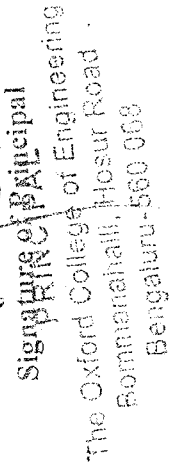 Signature of Principal
PRINCIPAL
The Oxford College of Engineering
Bommanahalli, Hosur Road
Bengaluru-560 068